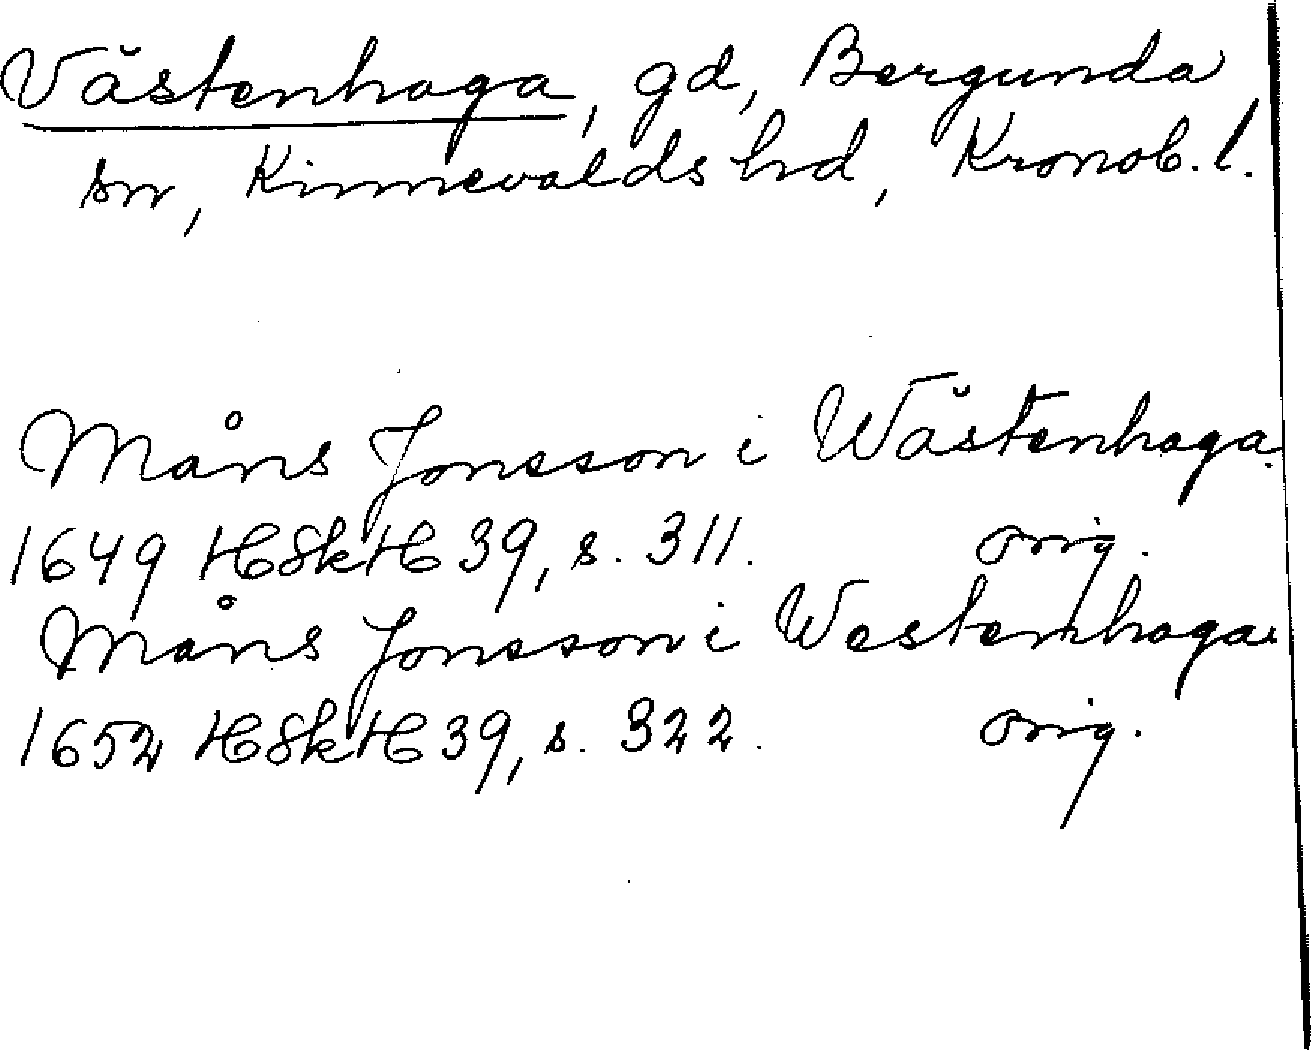 Västenhaga, gd, Bergunda
sn, Kinnevalds hd, Kronob. l.
Måns Jonsson i Wästenhaga.
1649 HSkH 39, s. 311. orig.
Måns Jonsson i Westenhaga.
1652 HSkH 39, s. 322. orig.